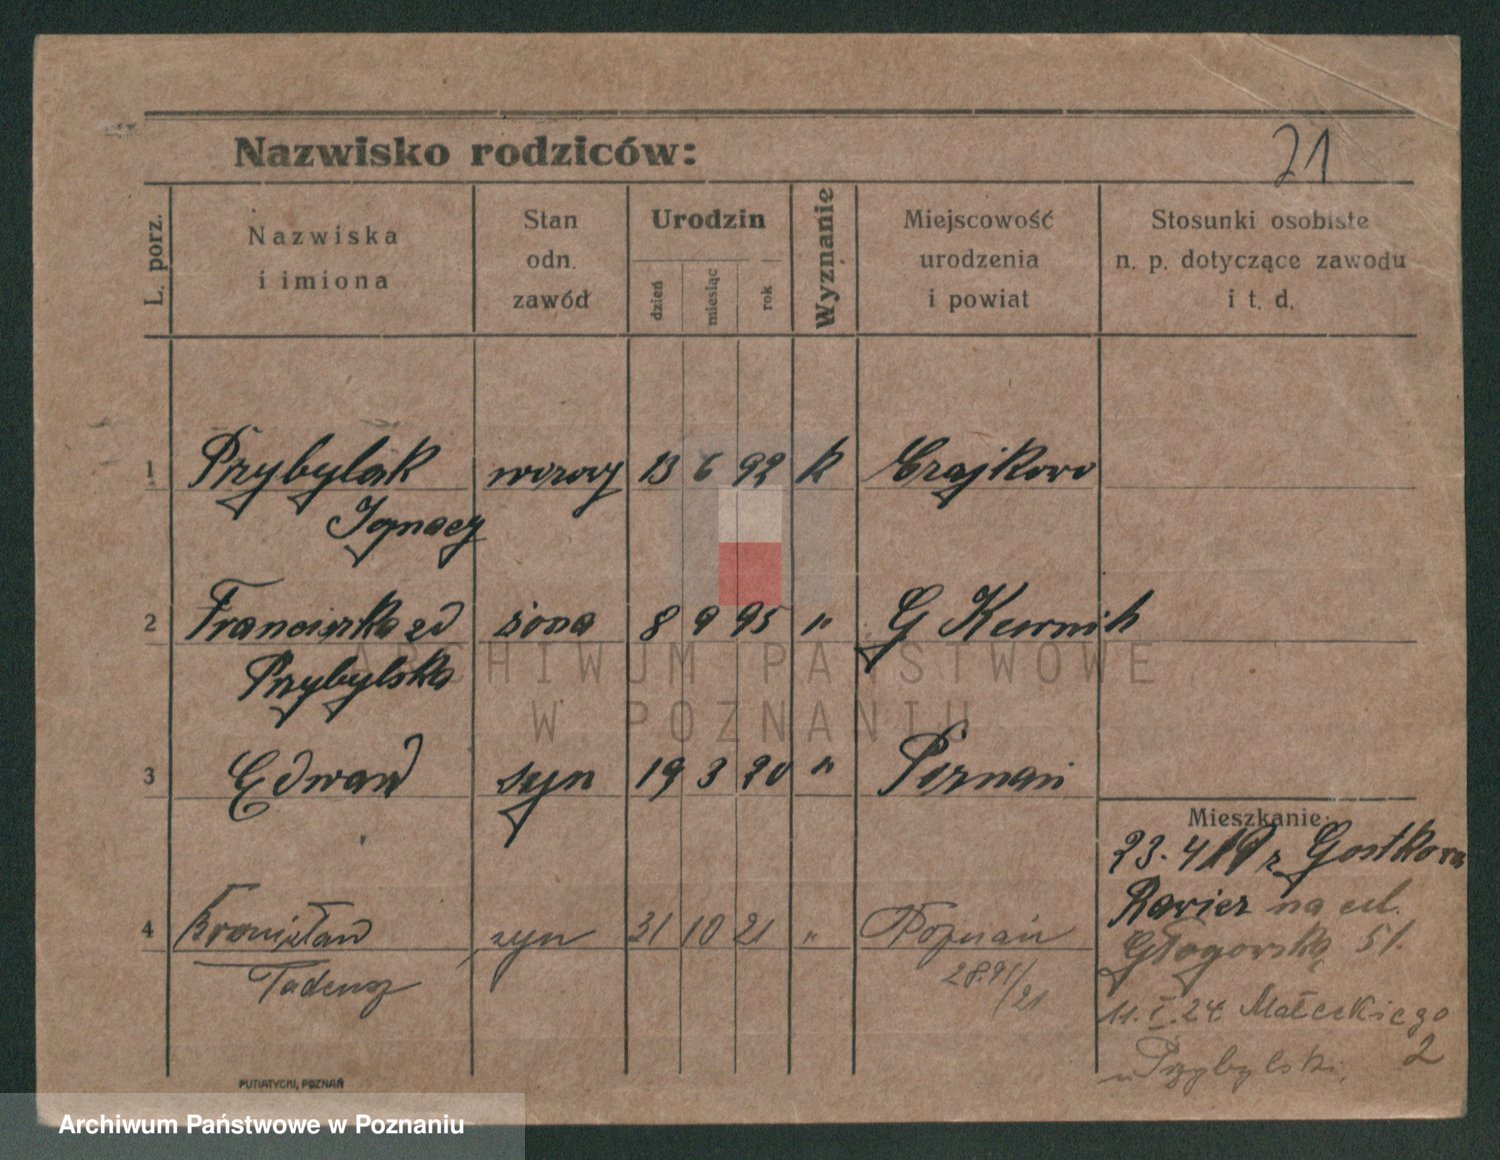 Nazwisko rodziców:
21
L. porz.
Nazwiska
i imiona
Stan
odn.
zawód
Urodzin
dzień
miesiąc
rok
Wyznanie
Miejscowość
urodzenia
i powiat
Stosunki osobiste
n. p. dotyczące zawodu
i t. d.
1 Przybylak 13 6 92 k Czajkowo
Ignacy
2 Franciszka zd żona 8 9 95 " G Kurnik
Przybylska
3 Edward syn 19 3 20 " Poznań
Mieszkanie:
23. 4 19 z Gostkowa
Rawicz na ul.
4 Bronisław syn 31 10 21 " Poznań
Głogowską 51.
Tadeusz
11. I. 24. Małeckiego
2
u Przybylski.
PUTIATYCKI, POZNAŃ
ARCHIWUM PAŃSTWOWE
W POZNANIU
Archiwum Państwowe w Poznaniu